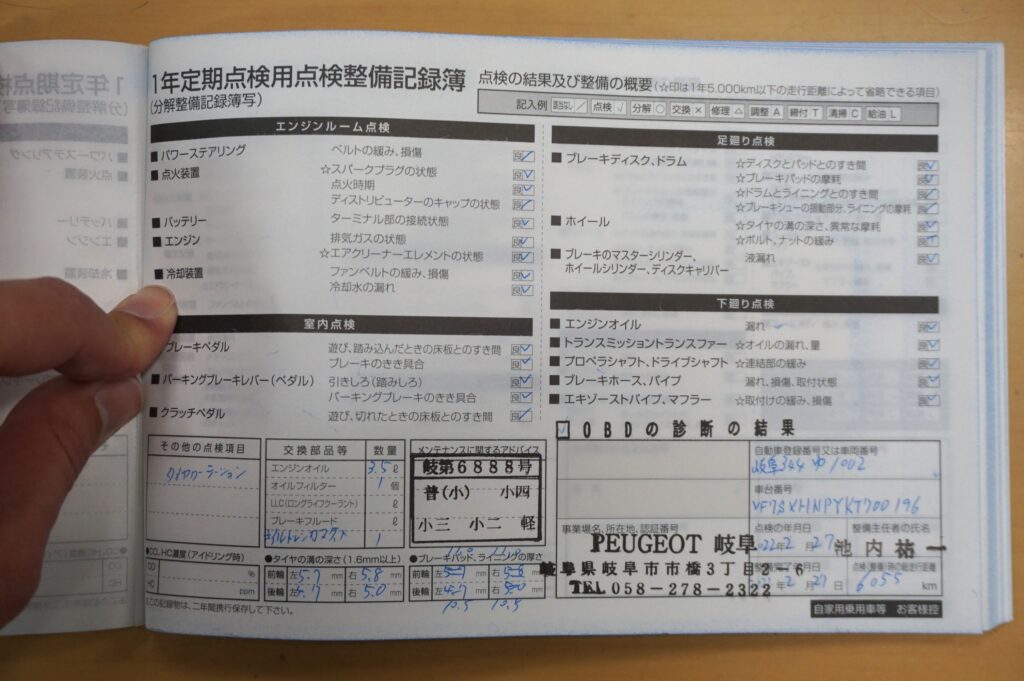 1年定期点検用点検整備記録簿
(分解整備記録簿写)
点検の結果及び整備の概要(☆印は1年5,000km以下の走行距離によって省略できる項目)
記入例 該当なし／ 点検✓ 分解○ 交換× 修理△ 調整A 締付T 清掃C 給油L
エンジンルーム点検
■パワーステアリング ベルトの緩み、損傷
■点火装置 ☆スパークプラグの状態
点火時期
ディストリビューターのキャップの状態
■バッテリー ターミナル部の接続状態
■エンジン 排気ガスの状態
☆エアクリーナーエレメントの状態
■冷却装置 ファンベルトの緩み、損傷
冷却水の漏れ
室内点検
ブレーキペダル 遊び、踏み込んだときの床板とのすき間
ブレーキのきき具合
■パーキングブレーキレバー(ペダル) 引きしろ(踏みしろ)
パーキングブレーキのきき具合
■クラッチペダル 遊び、切れたときの床板とのすき間
足廻り点検
■ブレーキディスク、ドラム ☆ディスクとパッドとのすき間
☆ブレーキパッドの摩耗
☆ドラムとライニングとのすき間
☆ブレーキシューの摺動部分、ライニングの摩耗
■ホイール ☆タイヤの溝の深さ、異常な摩耗
☆ボルト、ナットの緩み
■ブレーキのマスターシリンダー、 液漏れ
ホイールシリンダー、ディスクキャリパー
下廻り点検
■エンジンオイル 漏れ
■トランスミッショントランスファー ☆オイルの漏れ、量
■プロペラシャフト、ドライブシャフト ☆連結部の緩み
■ブレーキホース、パイプ 漏れ、損傷、取付状態
■エキゾーストパイプ、マフラー ☆取付けの緩み、損傷
OBDの診断の結果
その他の点検項目
タイヤローテーション
交換部品等 数量
エンジンオイル 3.5 ℓ
オイルフィルター 1 個
LLC(ロングライフクーラント) ℓ
ブレーキフルード ℓ
1
メンテナンスに関するアドバイス
岐第6888号
普(小) 小四
小三 小二 軽
自動車登録番号又は車両番号
岐阜344 ゆ 1002
車台番号
VF7SXHNPYKT700196
事業場名、所在地、認証番号
点検の年月日 整備主任者の氏名
2022年2月27日 池内祐一
PEUGEOT 岐阜
岐阜県岐阜市市橋3丁目2-6
TEL 058-278-2322
年2月27日
点検(整備)時の総走行距離
6055 km
●CO、HC濃度(アイドリング時)
CO %
HC ppm
●タイヤの溝の深さ(1.6mm以上)
前輪 左5.7mm 右5.8mm
後輪 右5.0mm
●ブレーキパッド、ライニングの厚さ
11.0 11.0
前輪 左 mm 右 mm
後輪 左 mm 右 mm
10.5 10.5
この記録物は、二年間携行保存して下さい。
自家用乗用車等 お客様控